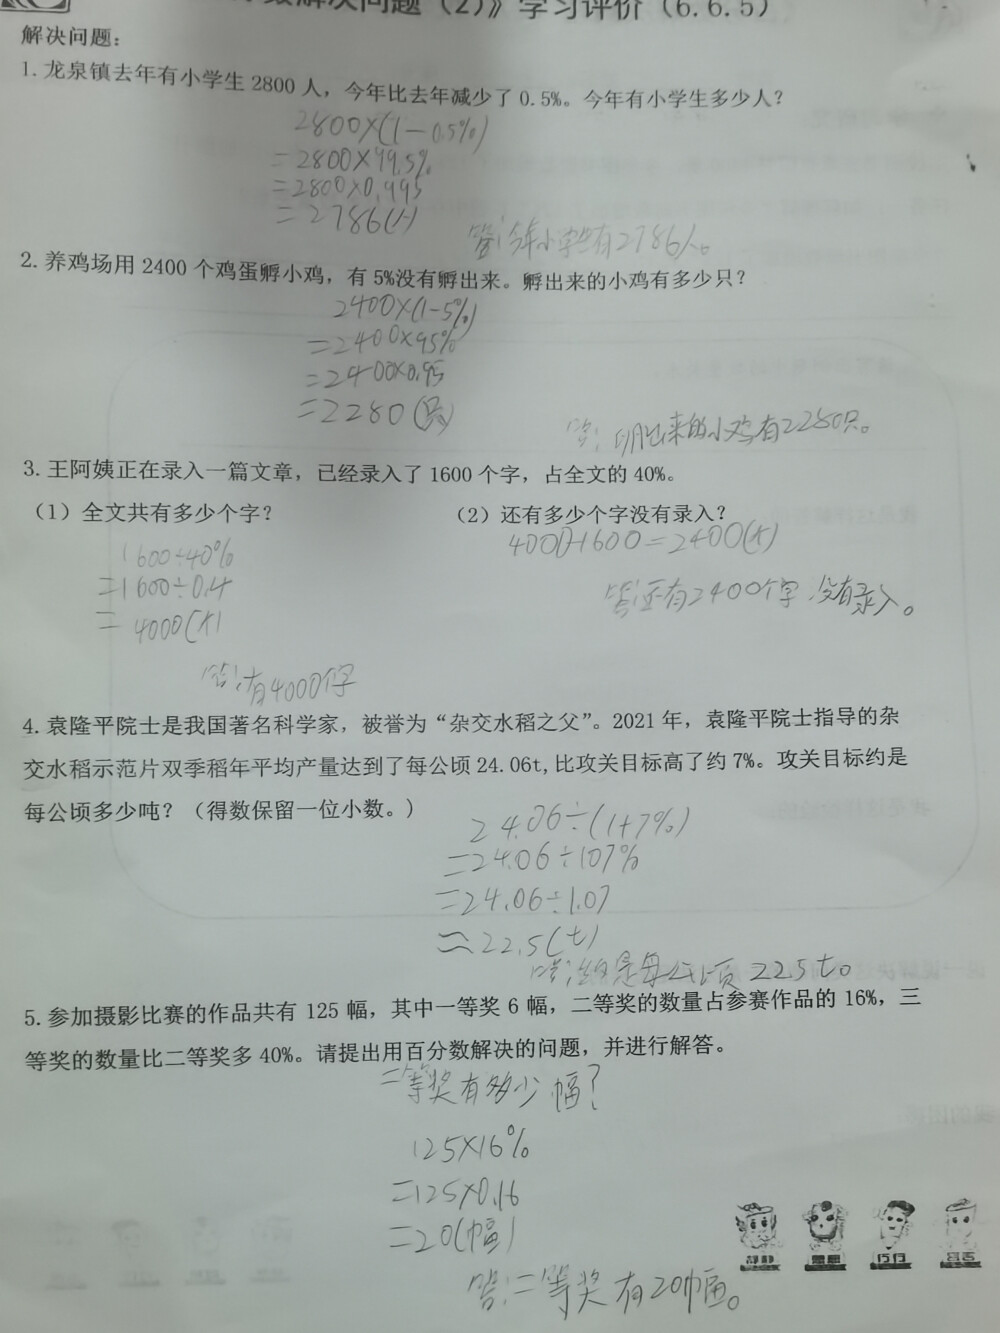 解决问题（2）》学习评价（6.6.5）
解决问题：
1. 龙泉镇去年有小学生 2800 人，今年比去年减少了 0.5%。今年有小学生多少人？
2800×(1-0.5%)
=2800×99.5%
=2800×0.995
=2786(人)
答:今年小学生有2786人。
2. 养鸡场用 2400 个鸡蛋孵小鸡，有 5%没有孵出来。孵出来的小鸡有多少只？
2400×(1-5%)
=2400×95%
=2400×0.95
=2280(只)
答:孵出来的小鸡有2280只。
3. 王阿姨正在录入一篇文章，已经录入了 1600 个字，占全文的 40%。
（1）全文共有多少个字？ （2）还有多少个字没有录入？
4000-1600=2400(个)
1600÷40%
=1600÷0.4
=4000(个)
答:还有2400个字没有录入。
答:有4000个字
4. 袁隆平院士是我国著名科学家，被誉为“杂交水稻之父”。2021 年，袁隆平院士指导的杂
交水稻示范片双季稻年平均产量达到了每公顷 24.06t,比攻关目标高了约 7%。攻关目标约是
每公顷多少吨？（得数保留一位小数。）
24.06÷(1+7%)
=24.06÷107%
=24.06÷1.07
≈22.5(t)
答: 是每公顷 22.5t。
5. 参加摄影比赛的作品共有 125 幅，其中一等奖 6 幅，二等奖的数量占参赛作品的 16%，三
等奖的数量比二等奖多 40%。请提出用百分数解决的问题，并进行解答。
二等奖有多少幅?
125×16%
=125×0.16
=20(幅)
答:二等奖有20幅。
静静 思思 巧巧